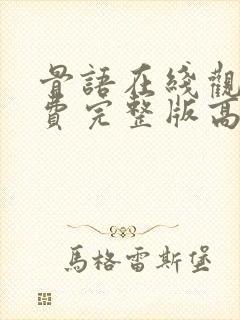 骨語在綫觀
費完整版高
馬格雷斯堡